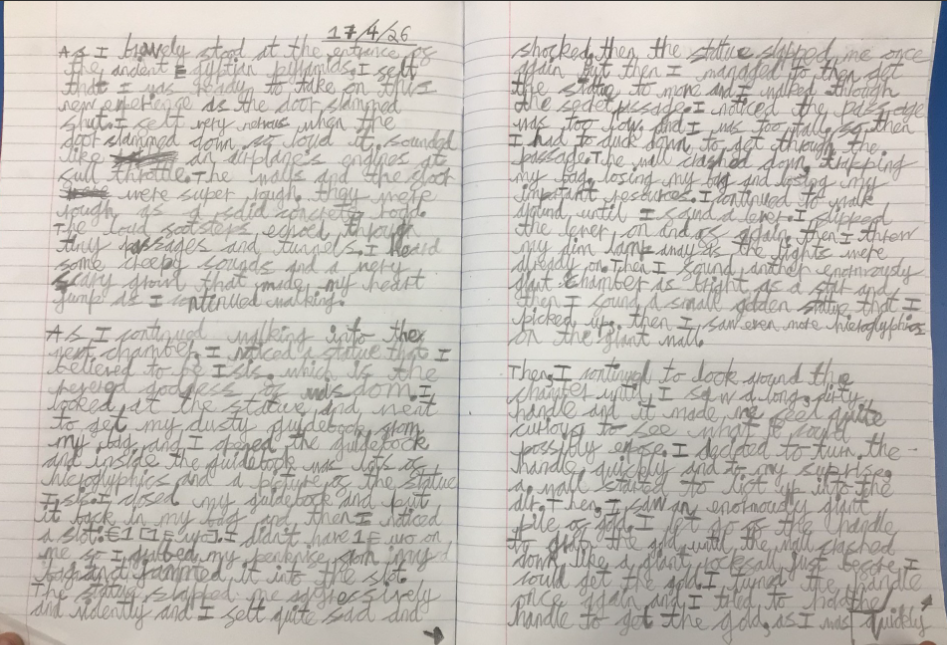 17/4/26
As I bravely stood at the entrance of
the ancient Egyptian pyramids. I felt
that I was ready to take on this
new experience as the door slammed
shut. I felt very nervous when the
door slammed down so loud it sounded
like an airplane's engines at
full throttle. The walls and the floor
were super rough. they were
rough as a solid concrete road.
The loud footsteps echoed through
tiny passages and tunnels. I heard
some creepy sounds and a very
scary growl that made my heart
jump as I continued walking.
As I continued walking into the
next chamber, I noticed a statue that I
believed to be Isis. which is the
goddess of wisdom. I
looked at the statue and went
to get my dusty guidebook from
my bag and I opened the guidebook
and inside the guidebook was lots of
hieroglyphics and a picture of the statue
Isis. I closed my guidebook and put
it back in my bag and then I noticed
a slot: €1 [1 Euro]. I didn't have 1 Euro on
me so I grabbed my penknife from my
bag and jammed it into the slot.
The statue slapped me aggressively
and violently and I felt quite sad and
shocked. then the statue slapped me once
again but then I managed to then get
the statue to move and I walked through
the secret passage. I noticed the passage
was too low and I was too tall, so then
I had to duck down to get through the
passage. The wall crashed down, trapping
my bag, losing my bag and losing my
important resources. I continued to walk
around until I found a lever. I flipped
the lever on and off again, then I threw
my dim lamp away as the lights were
already on. Then I found another enormously
giant chamber as bright as a star and
then I found a small golden statue that I
picked up. then I saw even more hieroglyphics
on the giant wall.
Then, I continued to look around the
chamber until I saw a long, dirty
handle and it made me feel quite
curious to see what it could
possibly expose. I decided to turn the
handle quickly and to my suprise,
a wall started to lift up into the
air. Then, I saw an enormously giant
pile of gold. I let go of the handle
to the gold until the wall crashed
down like a giant rockfall just before I
could get the gold. I turned the handle
once again and I tried to hold the
handle to get the gold, as I was quickly